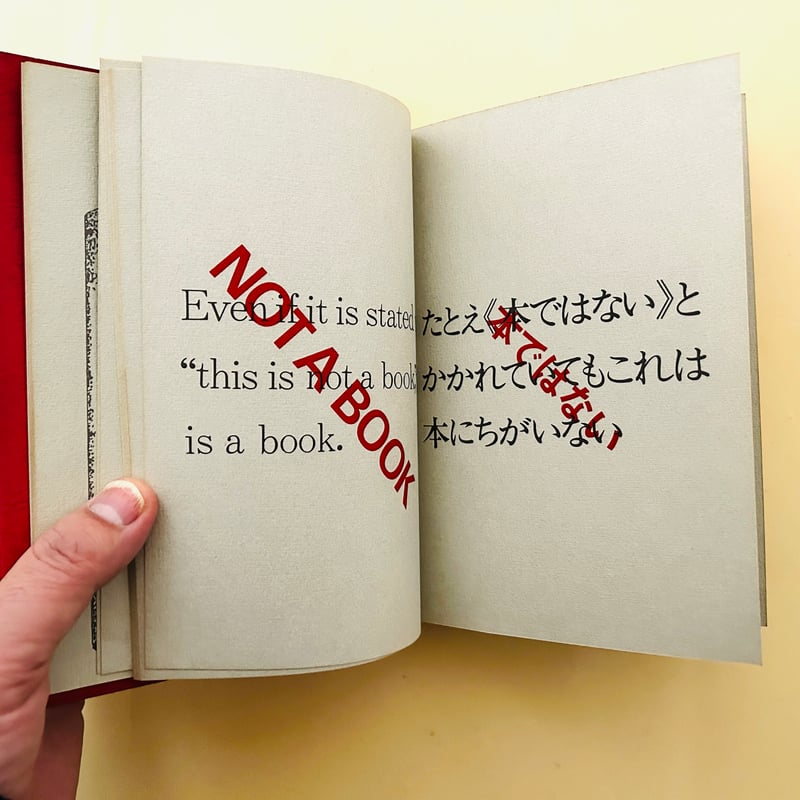 Even if it is stated
“this is not a book”
is a book.
NOT A BOOK
たとえ《本ではない》と
かかれていてもこれは
本にちがいない
本ではない